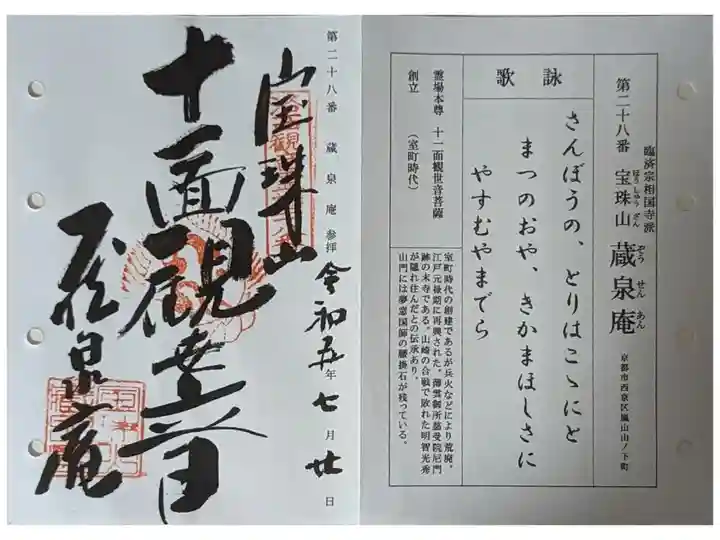 臨済宗相国寺派
第二十八番 宝珠山 蔵泉庵
ほうしゅうざん ぞうせんあん
京都市西京区嵐山山ノ下町
詠歌
さんぼうの、とりはこゝにと
まつのおや、きかまほしさに
やすむやまでら
霊場本尊 十一面観世音菩薩
創立 (室町時代)
室町時代の創建であるが兵火などにより荒廃。
江戸元禄期に再興された。薄雲御所慈受院尼門
跡の末寺である。山崎の合戦で敗れた明智光秀
が隠れ住んだとの伝承あり。
山門には夢窓国師の腰掛石が残っている。
第二十八番 蔵泉庵 参拝 令和五年七月廿日
宝珠山
十一面観世音
蔵泉庵